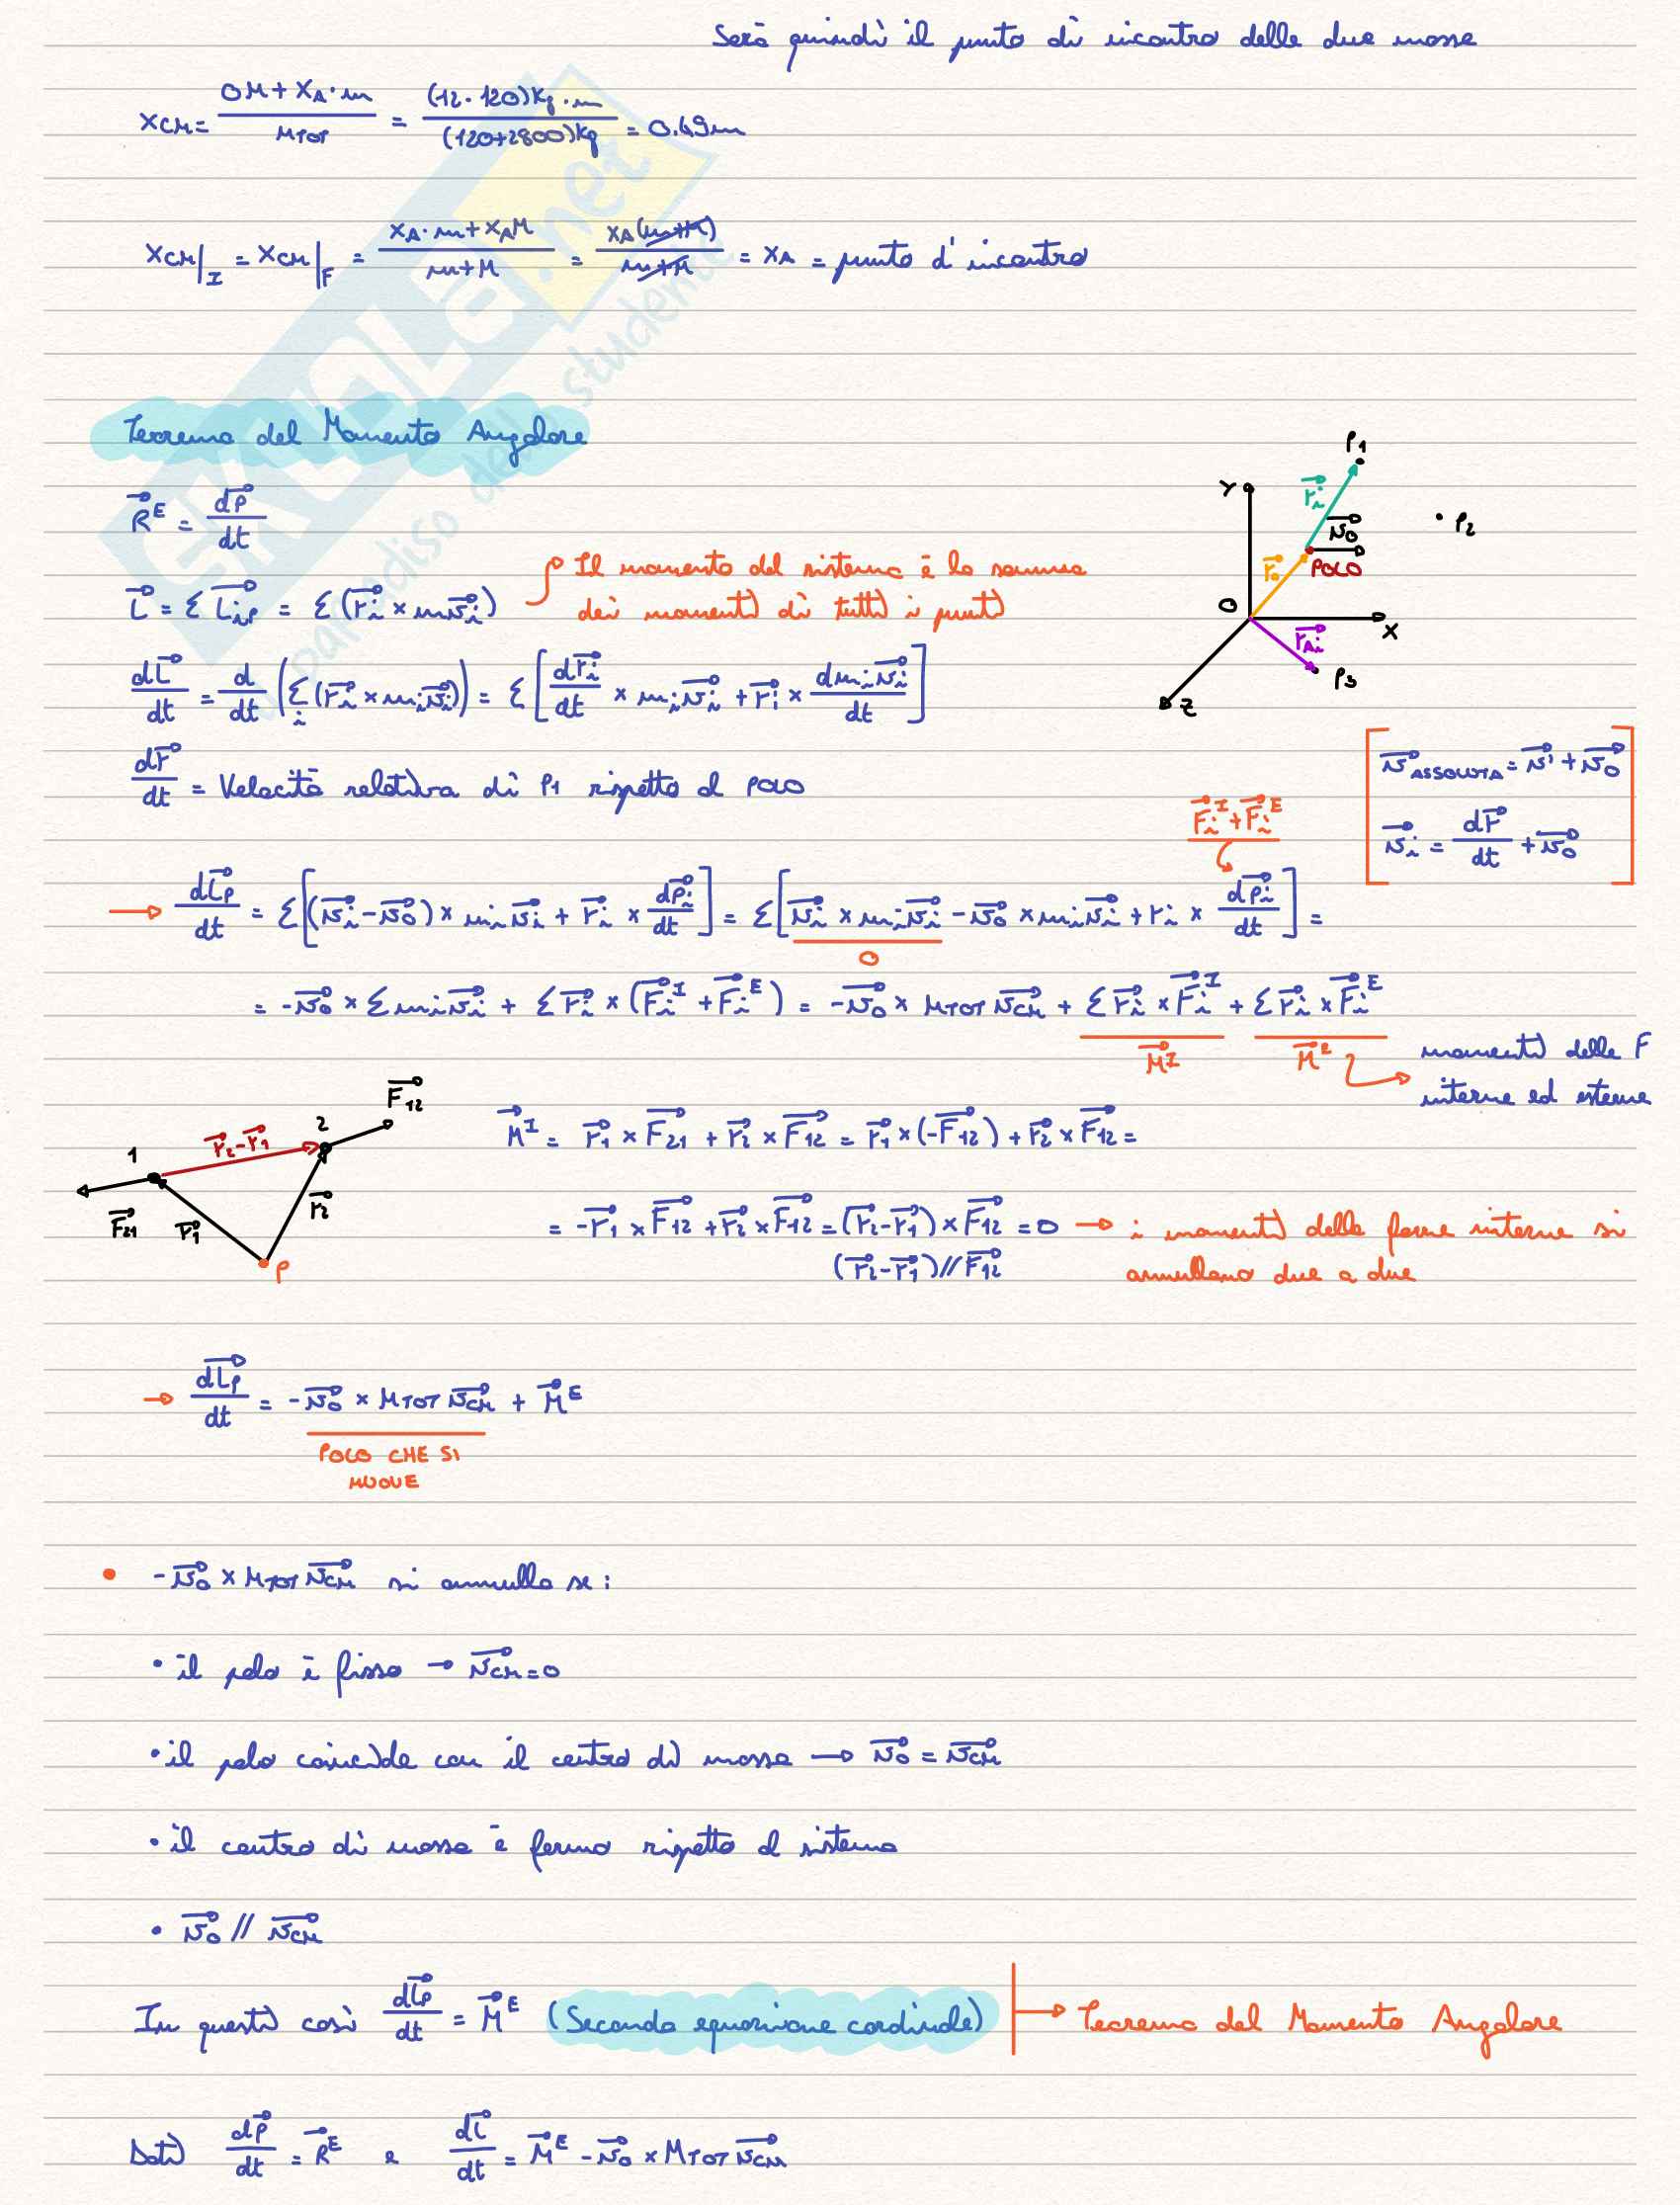 Sarà quindi il punto di incontro delle due masse
XCM = (0M + XA · m) / MTOT = ((12 · 120) Kg · m) / ((120+2800) Kg) = 0.49m
XCM|I = XCM|F = (XA · m + XA M) / (m+M) = XA(m+M) / (m+M) = XA = punto d'incontro
Teorema del Momento Angolare
R⃗^E = dP⃗/dt
L⃗ = Σ L⃗ip = Σ (r⃗i × m v⃗i)
Il momento del sistema è la somma
dei momenti di tutti i punti
dL⃗/dt = d/dt (Σi (r⃗i × mi v⃗i)) = Σ [dr⃗i/dt × mi v⃗i + r⃗i × dmi v⃗i/dt]
dr⃗/dt = Velocità relativa di P1 rispetto al POLO
Y
P1
r⃗i
v⃗0
P2
r⃗0
POLO
O
X
r⃗Ai
P3
Z
v⃗ASSOLUTA = v⃗' + v⃗0
v⃗i = dr⃗/dt + v⃗0
F⃗i^I + F⃗i^E
→ dL⃗p/dt = Σ [(v⃗i - v⃗0) × mi v⃗i + r⃗i × dp⃗i/dt] = Σ [v⃗i × mi v⃗i - v⃗0 × mi v⃗i + ri × dp⃗i/dt] =
0
= -v⃗0 × Σ mi v⃗i + Σ r⃗i × (F⃗i^I + F⃗i^E) = -v⃗0 × MTOT v⃗CM + Σ r⃗i × F⃗i^I + Σ r⃗i × F⃗i^E
M⃗^I M⃗^E
momenti delle F
interne ed esterne
F⃗12
2
r⃗2-r⃗1
1
F⃗21
r⃗1
r⃗2
P
M⃗^I = r⃗1 × F⃗21 + r⃗2 × F⃗12 = r⃗1 × (-F⃗12) + r⃗2 × F⃗12 =
= -r⃗1 × F⃗12 + r⃗2 × F⃗12 = (r⃗2-r⃗1) × F⃗12 = 0 → i momenti delle forze interne si
annullano due a due
(r⃗2-r⃗1) // F⃗12
→ dL⃗p/dt = -v⃗0 × MTOT v⃗CM + M⃗^E
POLO CHE SI
MUOVE
• -v⃗0 × MTOT v⃗CM si annulla se:
• il polo è fisso → v⃗CM = 0
• il polo coincide con il centro di massa → v⃗0 = v⃗CM
• il centro di massa è fermo rispetto al sistema
• v⃗0 // v⃗CM
In questi casi dL⃗p/dt = M⃗^E (Seconda equazione cardinale) → Teorema del Momento Angolare
Dati dP⃗/dt = R⃗^E e dL⃗/dt = M⃗^E - v⃗0 × MTOT v⃗CM